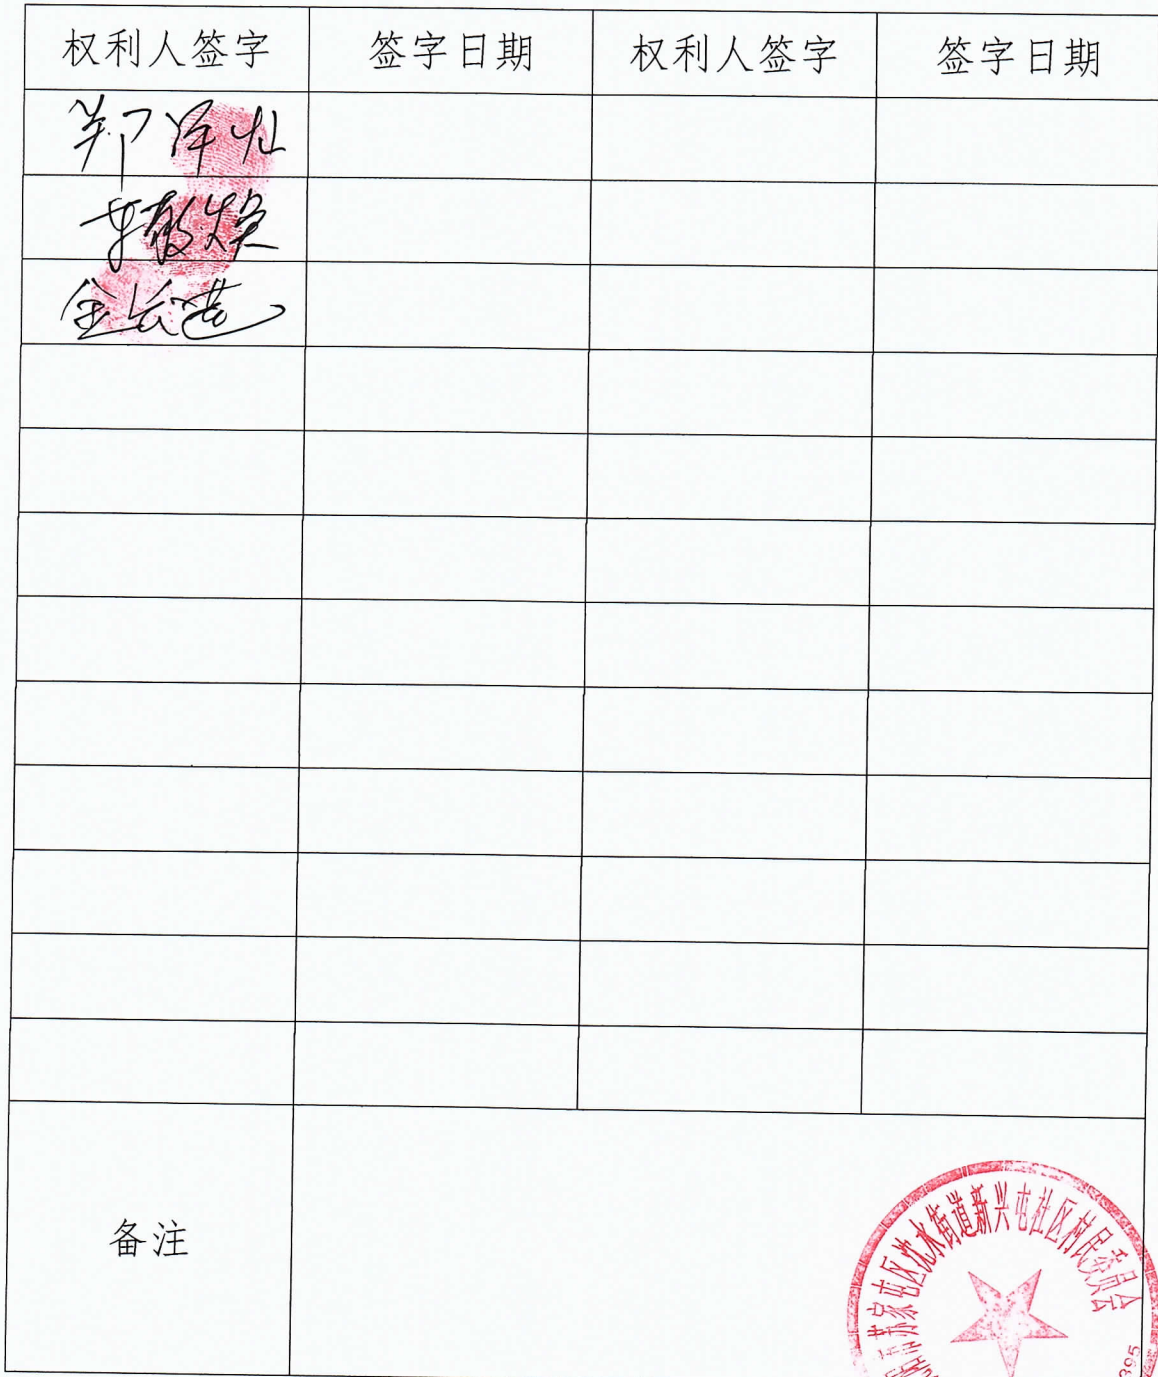 权利人签字 签字日期 权利人签字 签字日期
郑泽灿
李敬焕
金长莲
备注
苏家屯区沈水街道新兴屯社区村民委员会
395